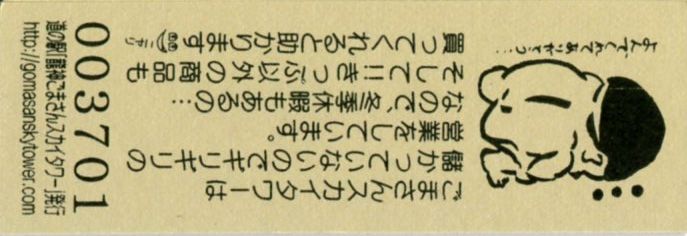 よんでくれてありがとう…
ごまさんスカイタワーは
儲かっていないのでギリギリの
営業をしています。
なので、冬季休暇もあるの…
そして!!きっぷ以外の商品も
買ってくれると助かります ニヤリ
003701
道の駅「龍神ごまさんスカイタワー」発行
http://gomasanskytower.com